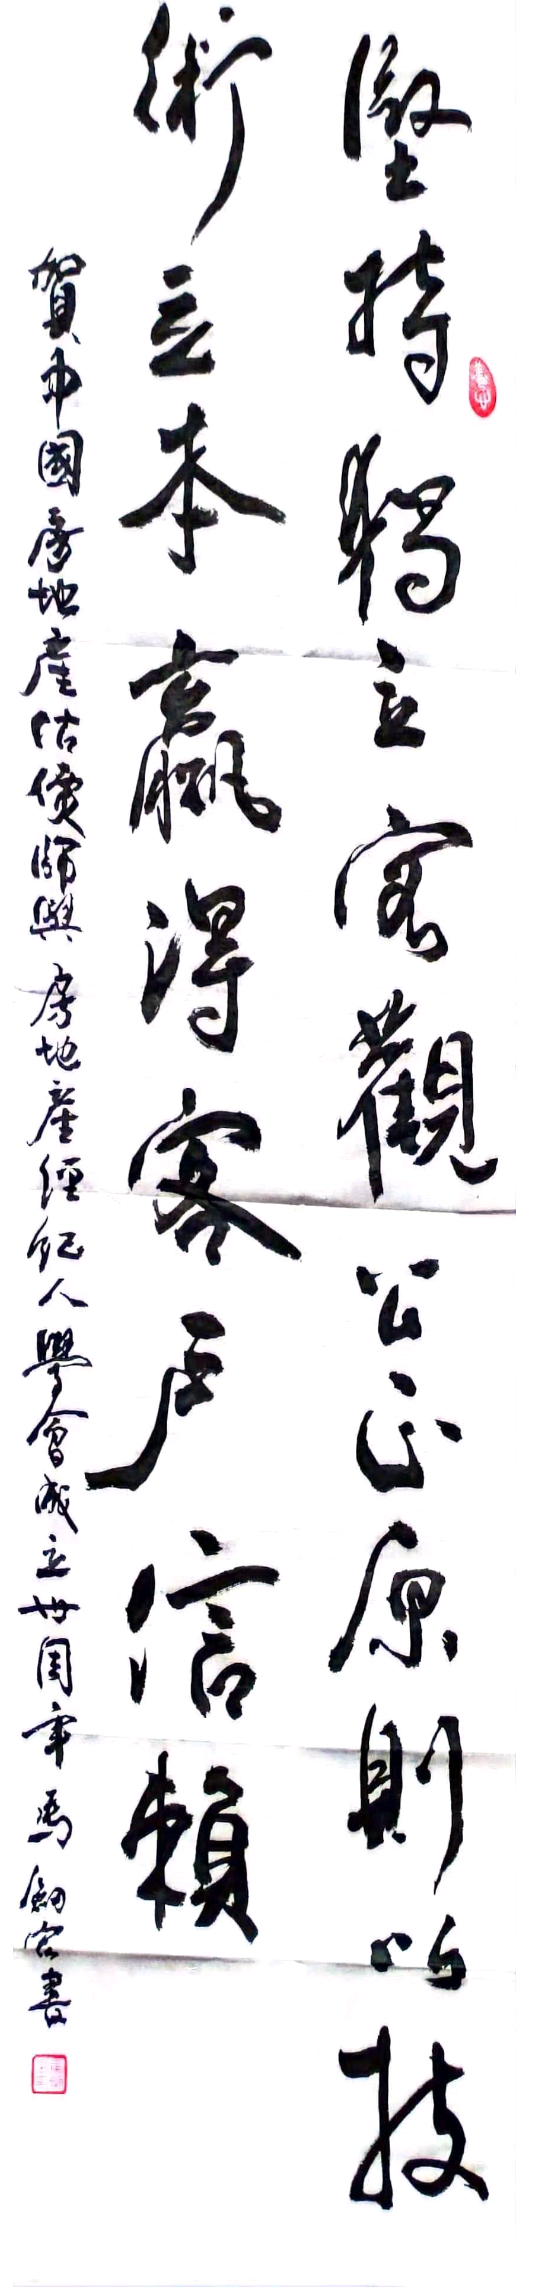 堅持獨立客觀公正原則以技
術立本贏得客户信賴
賀中國房地產估價師與房地產經紀人學會成立卅周年馬劍客書